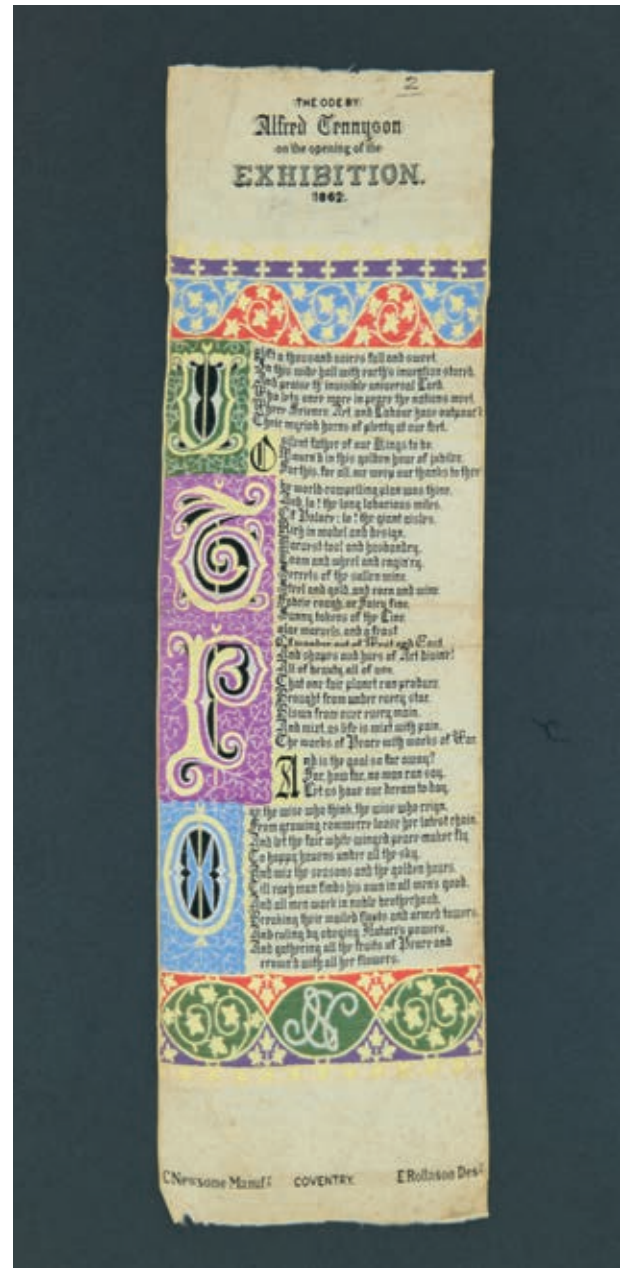 2
THE ODE BY
Alfred Tennyson
on the opening of the
EXHIBITION.
1862.
Uplift a thousand voices full and sweet,
In this wide hall with earth's invention stored,
And praise th' invisible universal Lord,
Who lets once more in peace the nations meet,
Where Science, Art, and Labour have outpour'd
Their myriad horns of plenty at our feet.
O silent father of our Kings to be,
Mourn'd in this golden hour of jubilee,
For this, for all, we weep our thanks to thee!
The world-compelling plan was thine,
And, lo! the long laborious miles
Of Palace; lo! the giant aisles,
Rich in model and design;
Harvest-tool and husbandry,
Loom and wheel and engin'ry,
Secrets of the sullen mine,
Steel and gold, and corn and wine,
Fabric rough, or Fairy fine,
Sunny tokens of the Line,
Polar marvels, and a feast
Of wonder out of West and East,
And shapes and hues of Art divine!
All of beauty, all of use,
That one fair planet can produce,
Brought from under every star,
Blown from over every main,
And mixt, as life is mixt with pain,
The works of Peace with works of War.
And is the goal so far away?
Far, how far, no man can say,
Let us have our dream to-day.
O ye, the wise who think, the wise who reign,
From growing commerce loose her latest chain,
And let the fair white winged peace-maker fly
To happy havens under all the sky,
And mix the seasons and the golden hours,
Till each man finds his own in all men's good,
And all men work in noble brotherhood,
Breaking their mailed fleets and armed towers,
And ruling by obeying Nature's powers,
And gathering all the fruits of Peace and
crown'd with all her flowers.
C Newsome Manufr COVENTRY. E Rollason Desr